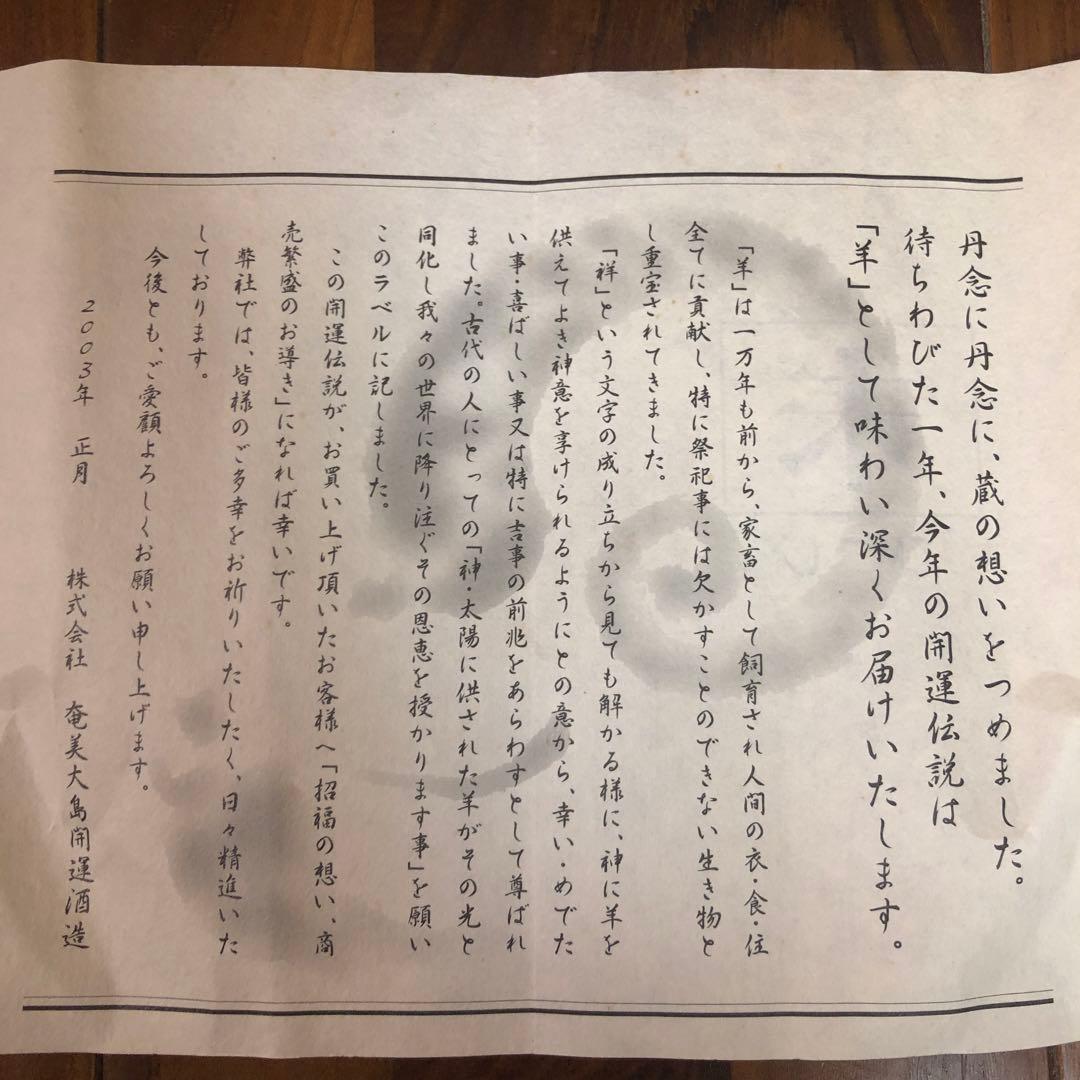 丹念に丹念に、蔵の想いをつめました。
待ちわびた一年、今年の開運伝説は
「羊」として味わい深くお届けいたします。
「羊」は一万年も前から、家畜として飼育され人間の衣・食・住
全てに貢献し、特に祭祀事には欠かすことのできない生き物と
し重宝されてきました。
「祥」という文字の成り立ちから見ても解かる様に、神に羊を
供えてよき神意を享けられるようにとの意から、幸い・めでた
い事・喜ばしい事又は特に吉事の前兆をあらわすとして尊ばれ
ました。古代の人にとっての「神・太陽に供された羊がその光と
同化し我々の世界に降り注ぐその恩恵を授かります事」を願い
このラベルに記しました。
この開運伝説が、お買い上げ頂いたお客様へ「招福の想い、商
売繁盛のお導き」になれば幸いです。
弊社では、皆様のご多幸をお祈りいたしたく、日々精進いた
しております。
今後とも、ご愛顧よろしくお願い申し上げます。
2003年 正月 株式会社 奄美大島開運酒造